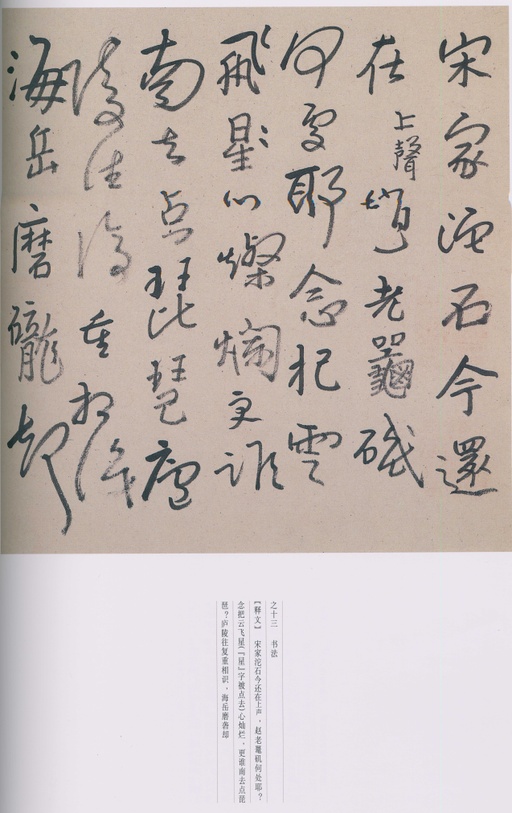 宋家沱石今還
在上聲趙老鼉磯
何处耶念杷雲
飛星心燦爛更誰
南去点琵琶廬
陵往復重相識
海岳磨礲却
之十三 书法
【释文】 宋家沱石今还在上声，赵老鼍机何处耶？
念杷云飞星（“星”字被点去）心灿烂，更谁南去点琵
琶？庐陵往复重相识，海岳磨砻却